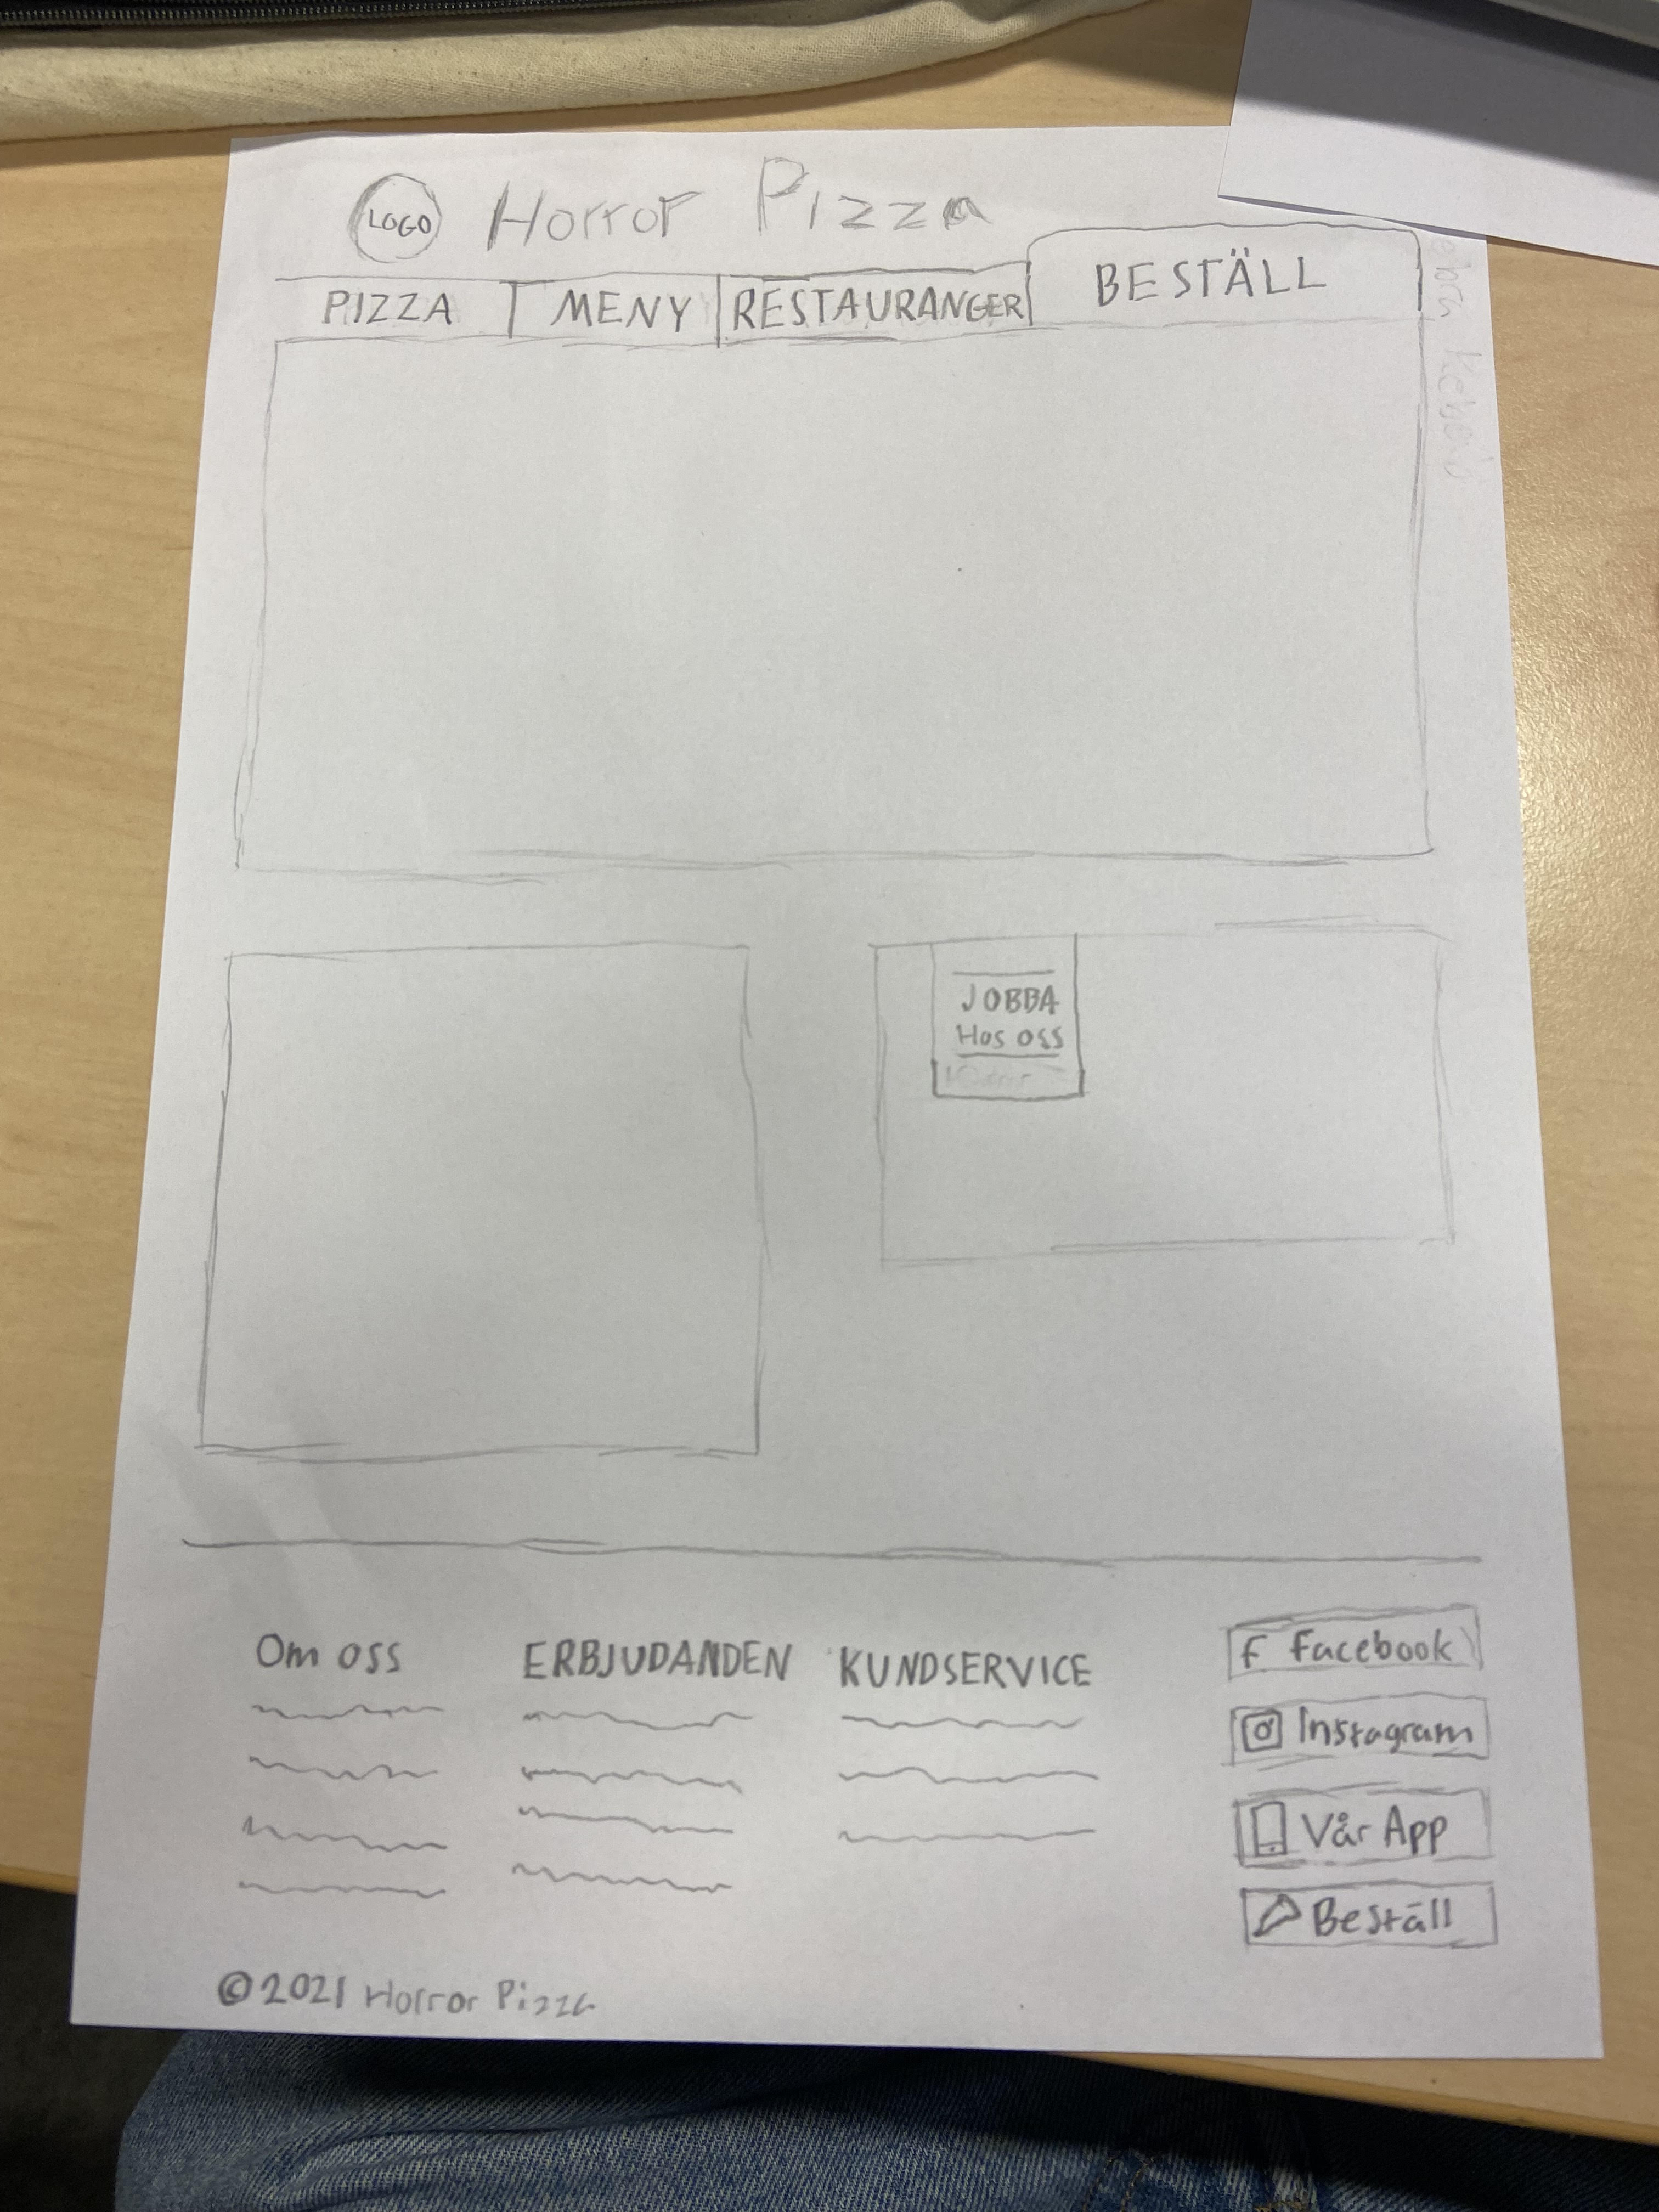 LOGO Horror Pizza
PIZZA MENY RESTAURANGER BESTÄLL
JOBBA
Hos oss
Om oss ERBJUDANDEN KUNDSERVICE
f Facebook
Instagram
Vår App
Beställ
©2021 Horror Pizza